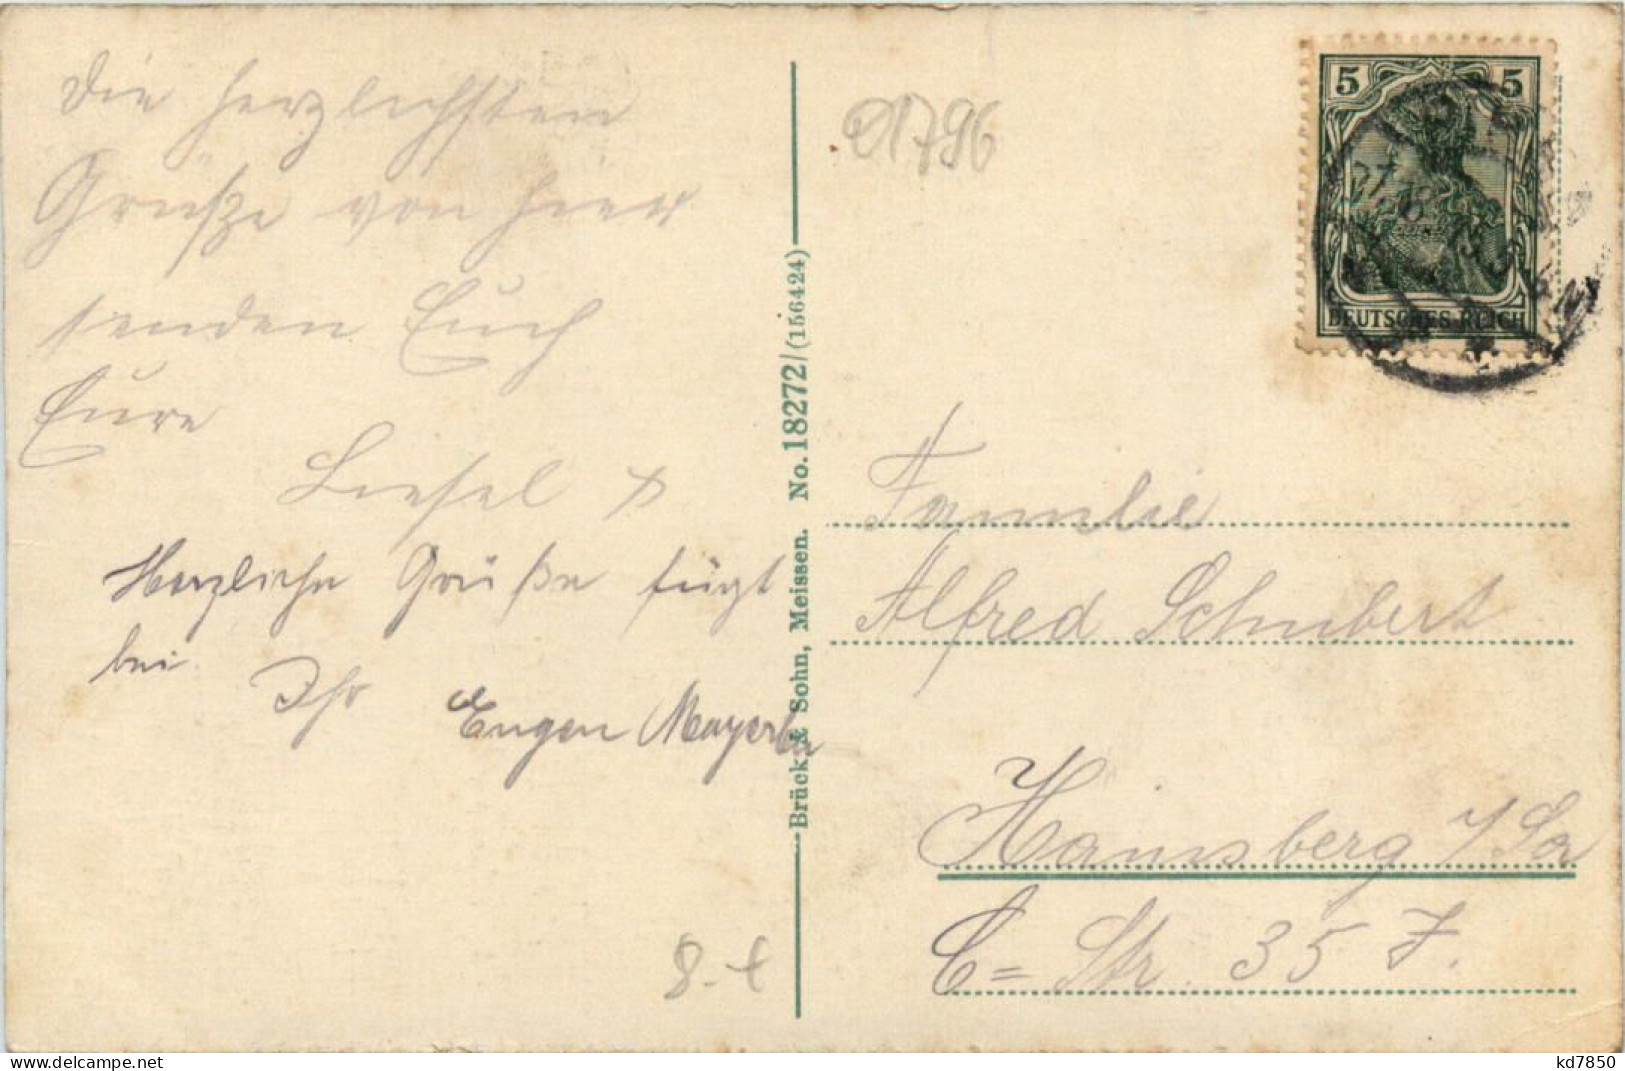 Die herzlichsten
Grüße von hier
senden Euch
Eure
Liesel &
Herzliche Grüße fügt
bei
Ihr Eugen Mayerle
8.-
Brück & Sohn, Meissen. No. 18272/(156424)
21796
5 5
DEUTSCHES REICH
Familie
Alfred Schubert
Hainsberg i/Sa
C= Str. 35 I.
delcampe.net
kd7850